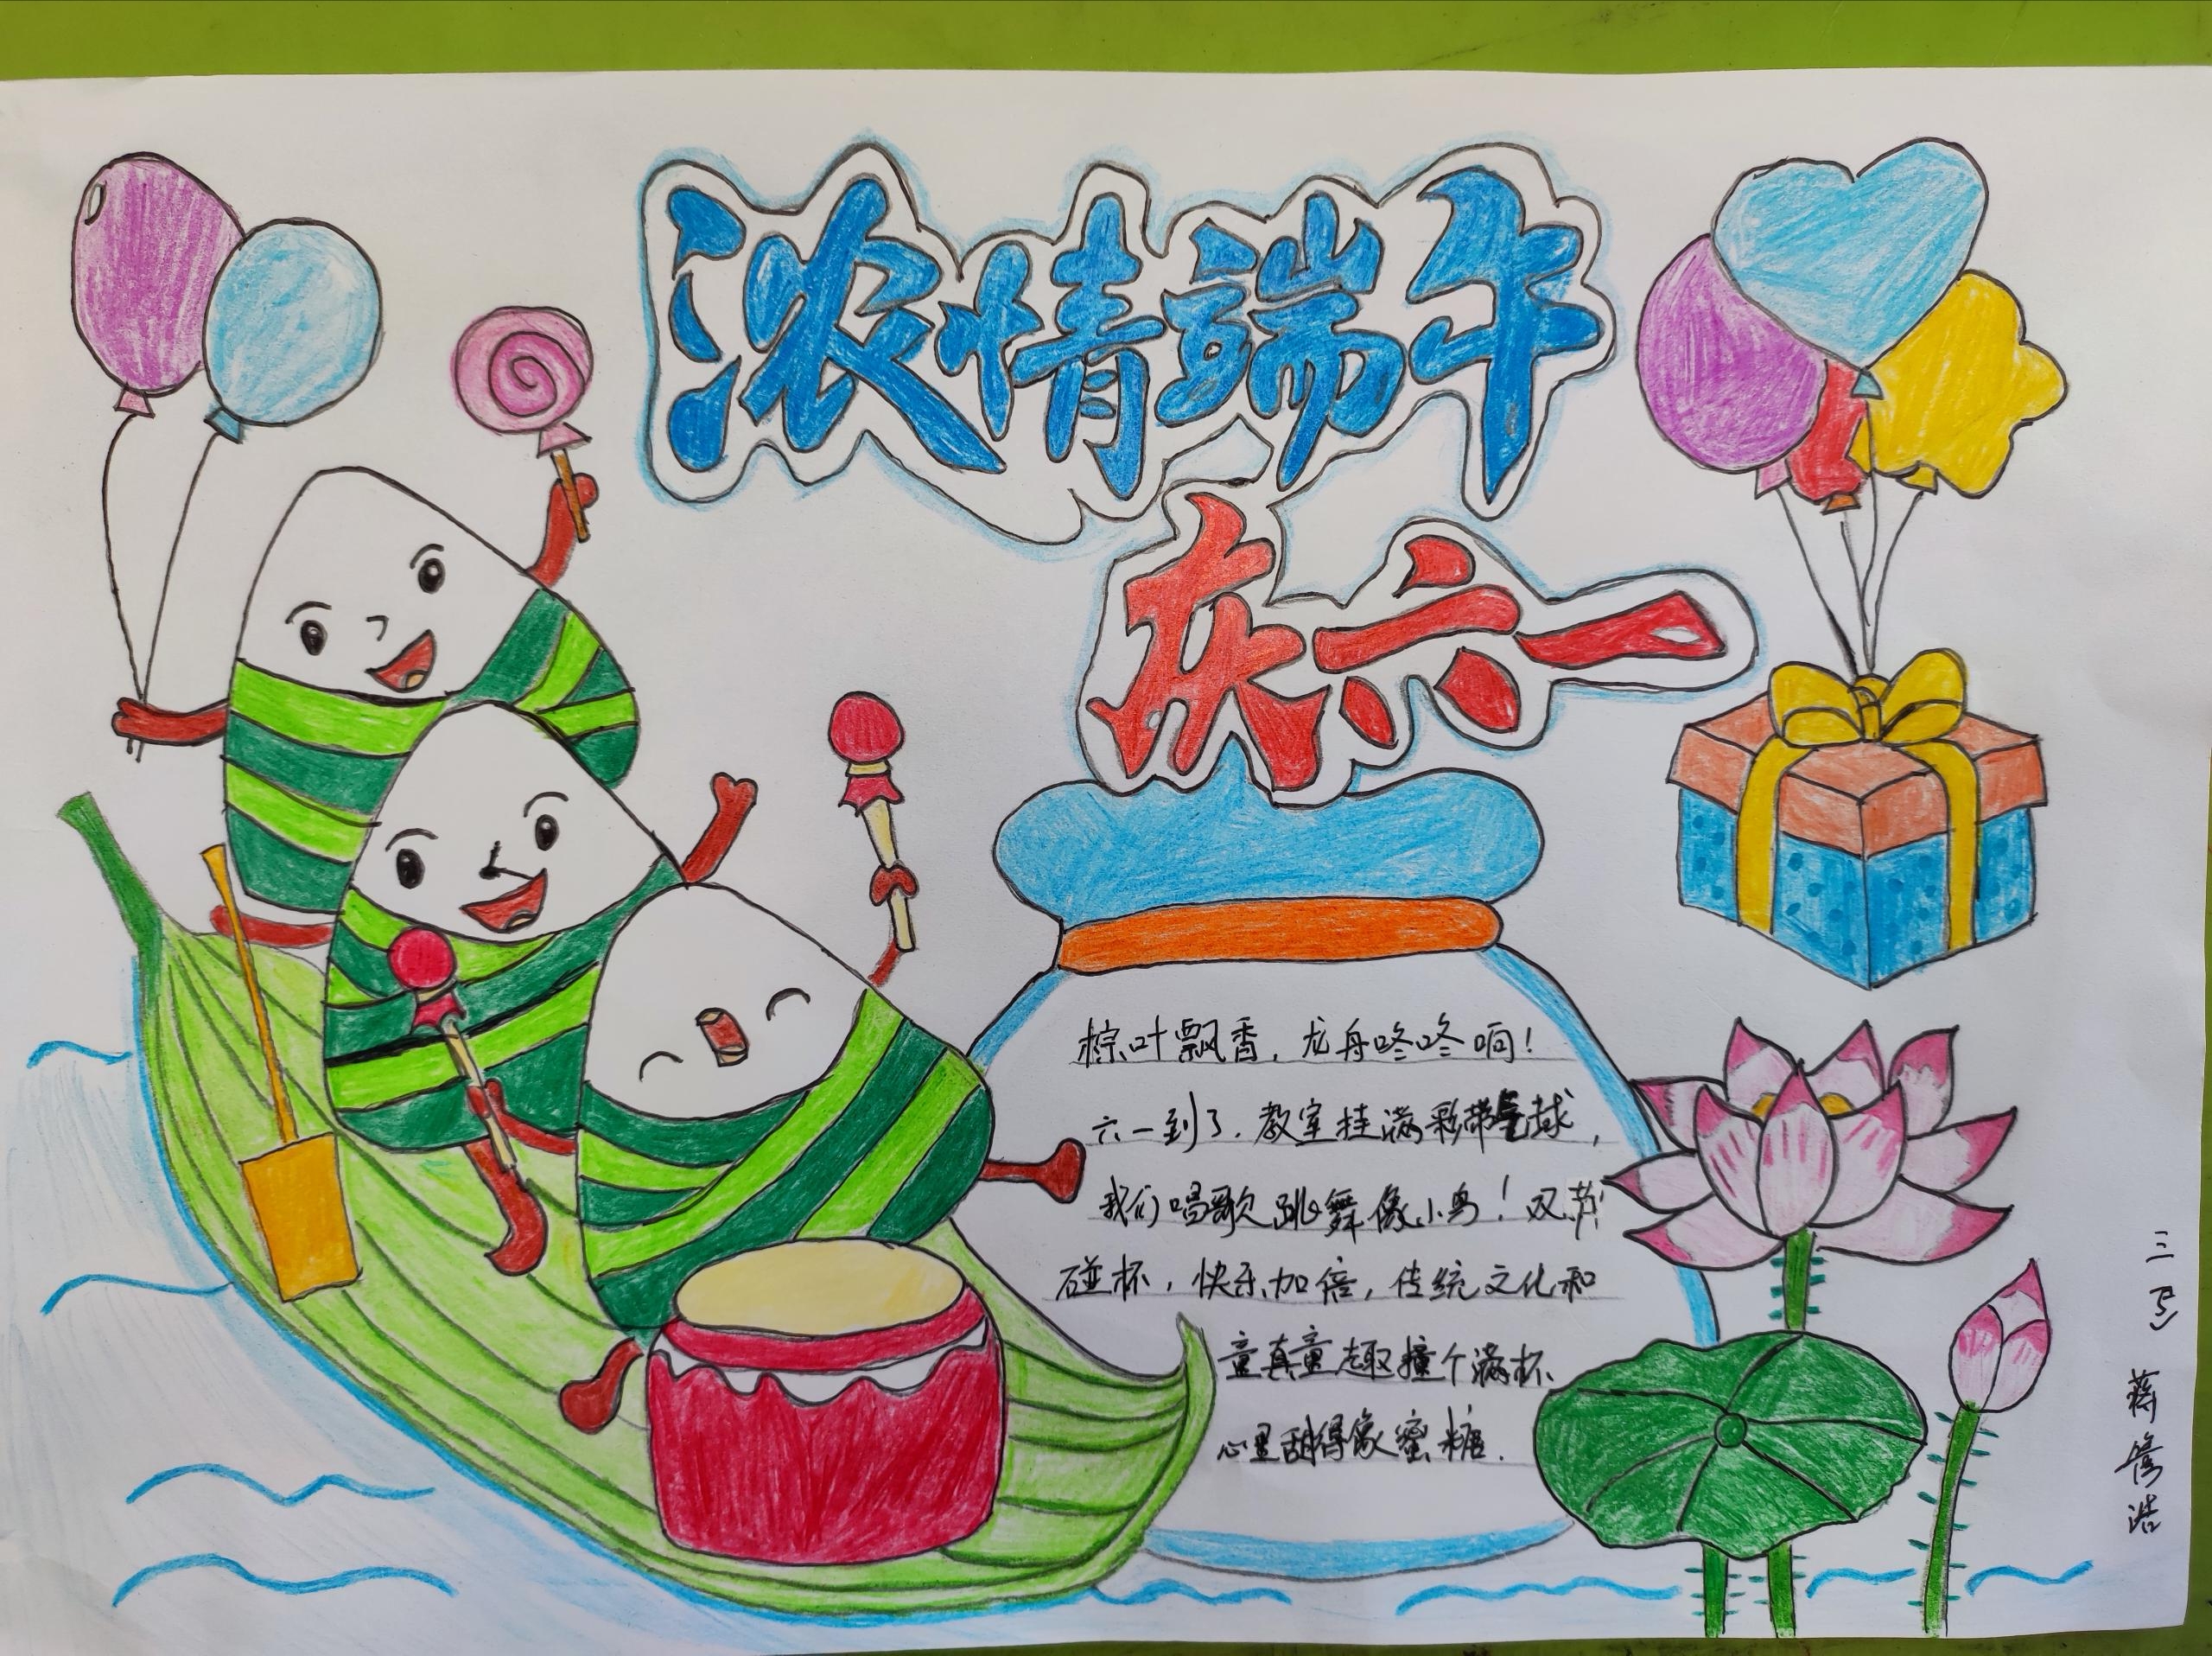 浓情端午
庆六一
棕叶飘香，龙舟咚咚响！
六一到了，教室挂满彩带气球，
我们唱歌跳舞像小鸟！双节
碰杯，快乐加倍，传统文化和
童真童趣撞个满杯、
心里甜得像蜜糖.
三(5) 蒋 浩